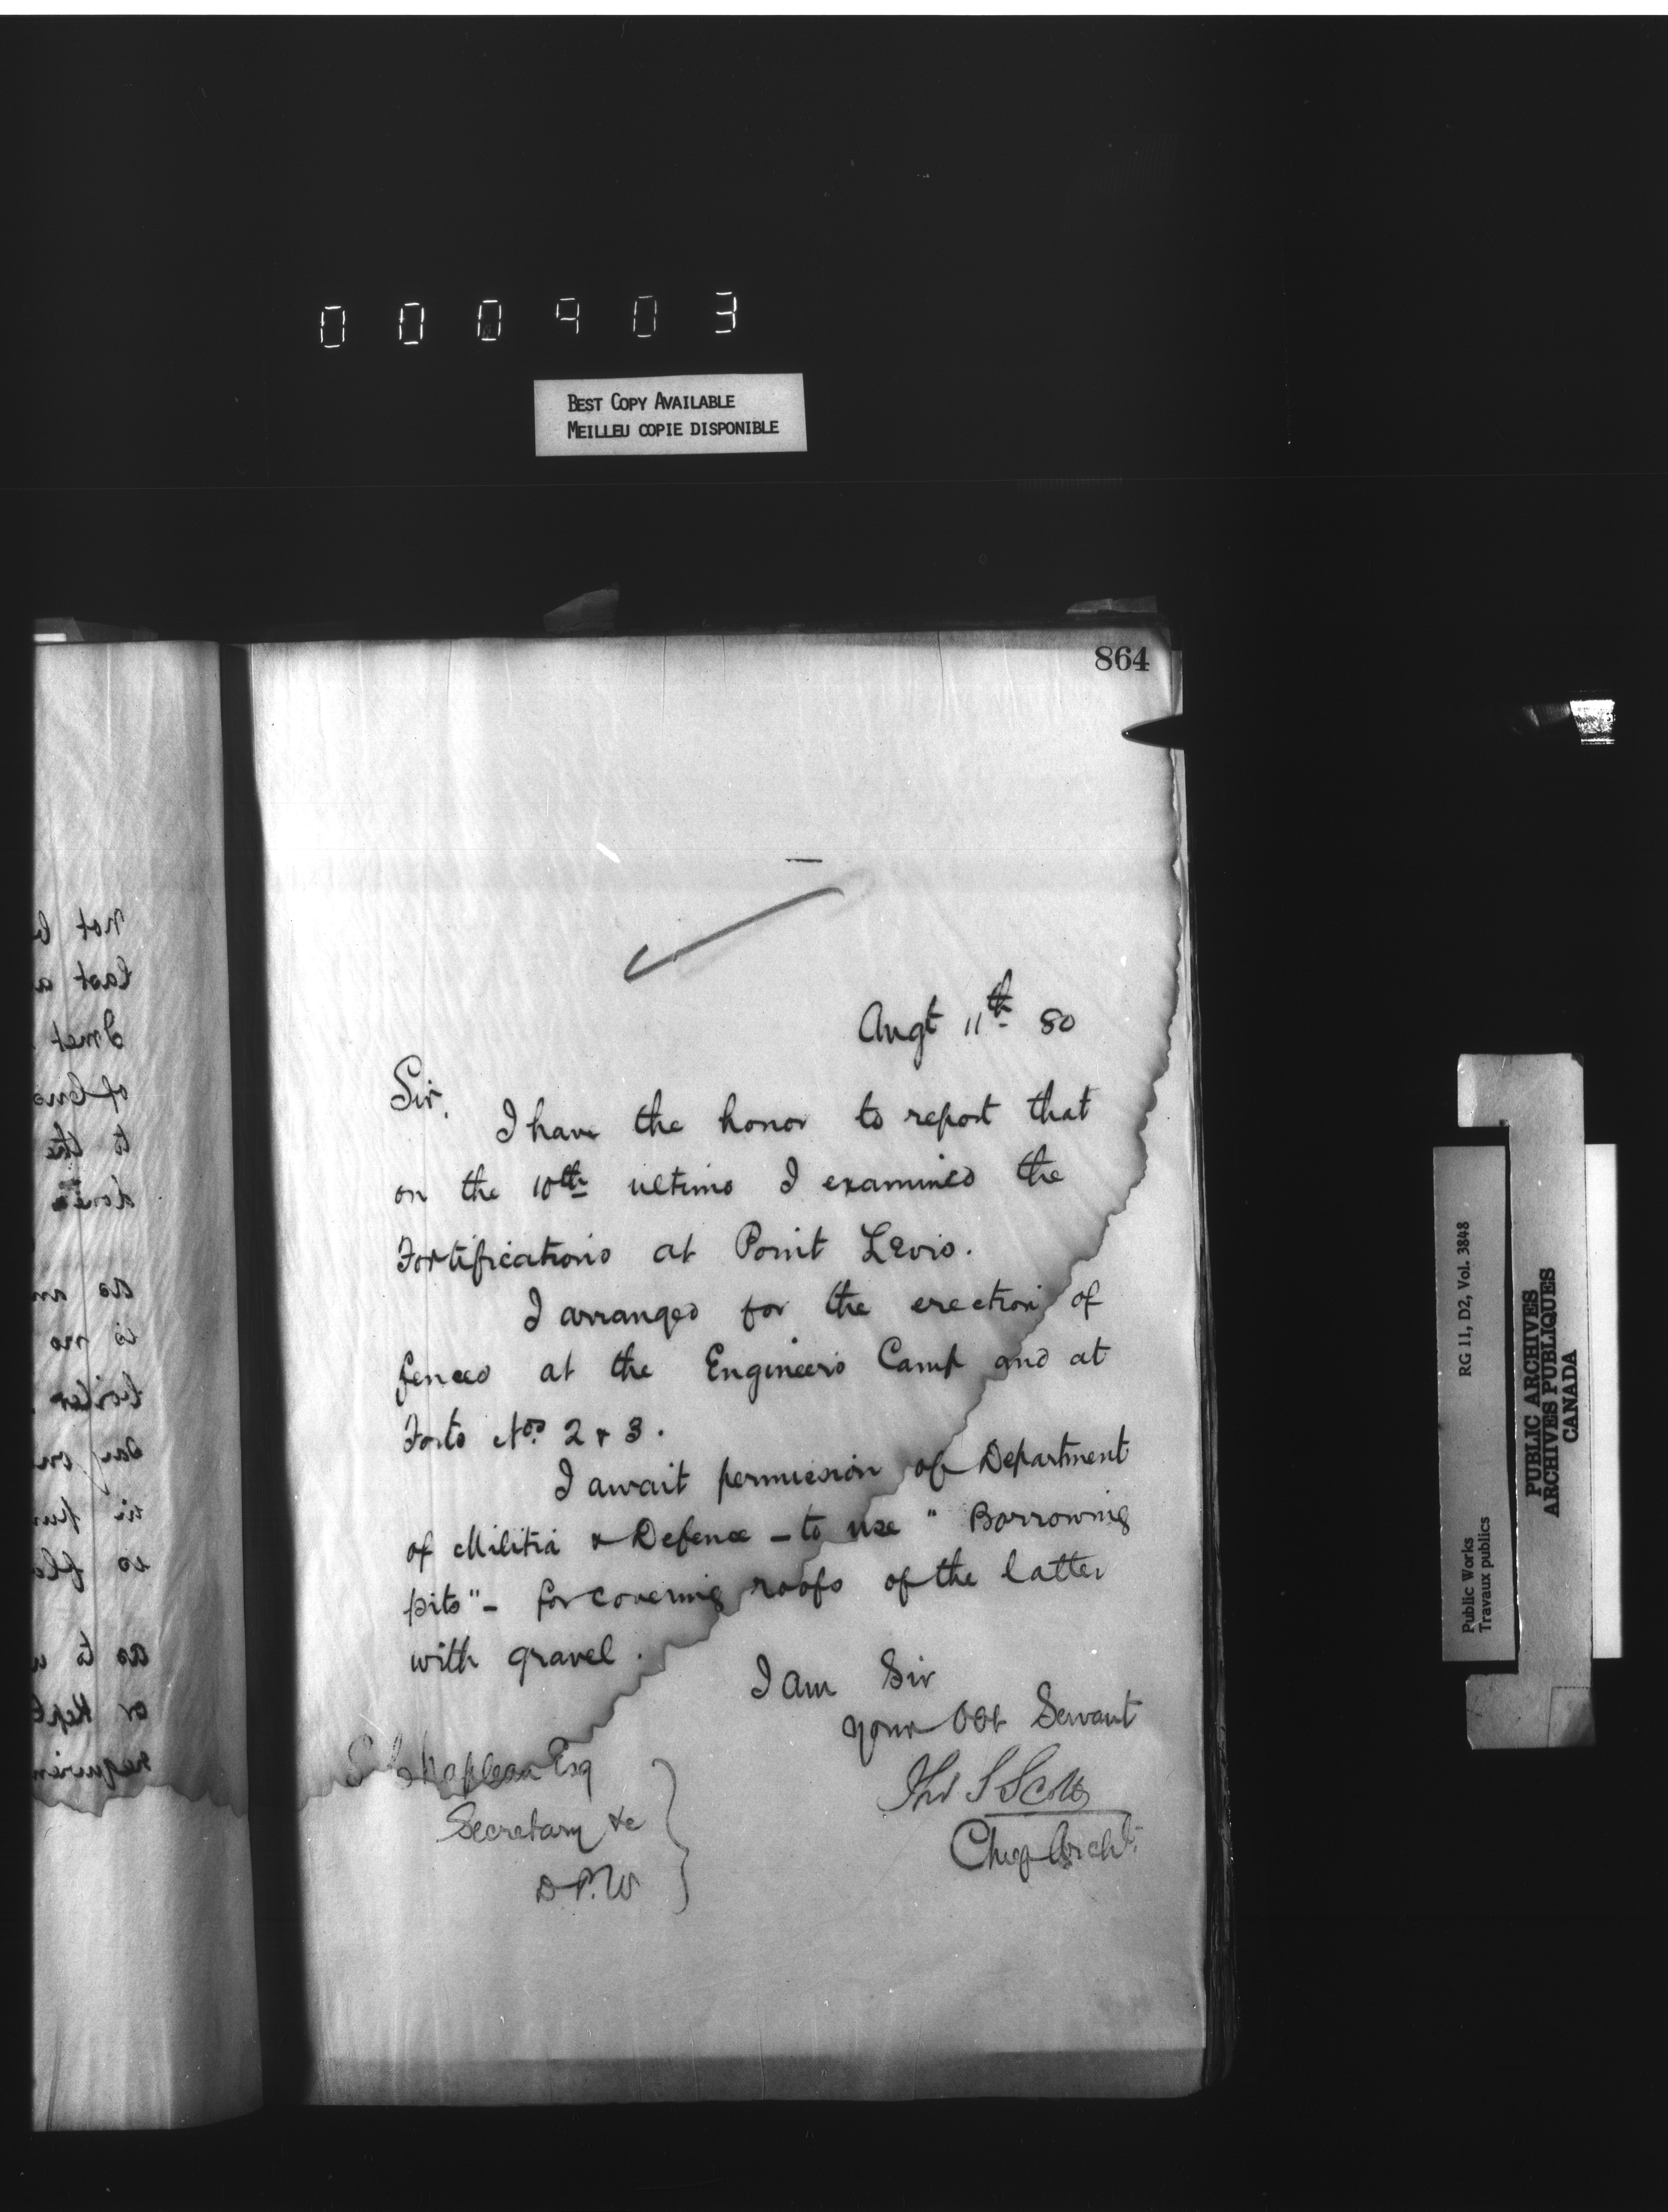 000903
BEST COPY AVAILABLE
MEILLEU COPIE DISPONIBLE
864
Augt 11th 80
Sir,
I have the honor to report that
on the 10th ultimo I examined the
Fortifications at Point Levis.
I arranged for the erection of
fences at the Engineers Camp and at
Forts Nos. 2 & 3.
I await permission of Department
of Militia & Defence - to use " Borrowing
pits" - for covering roofs of the latter
with gravel.
I am Sir
your Obt Servant
Thos S Scott
Chief Archt.
S Chapleau Esq
Secretary &c
D.P.W
not
last a
I met
of
to the
done
as an
is no
boiler
day
in
is
as to
or kept
requirem
RG 11, D2, Vol. 3848
Public Works
Travaux publics
PUBLIC ARCHIVES
ARCHIVES PUBLIQUES
CANADA